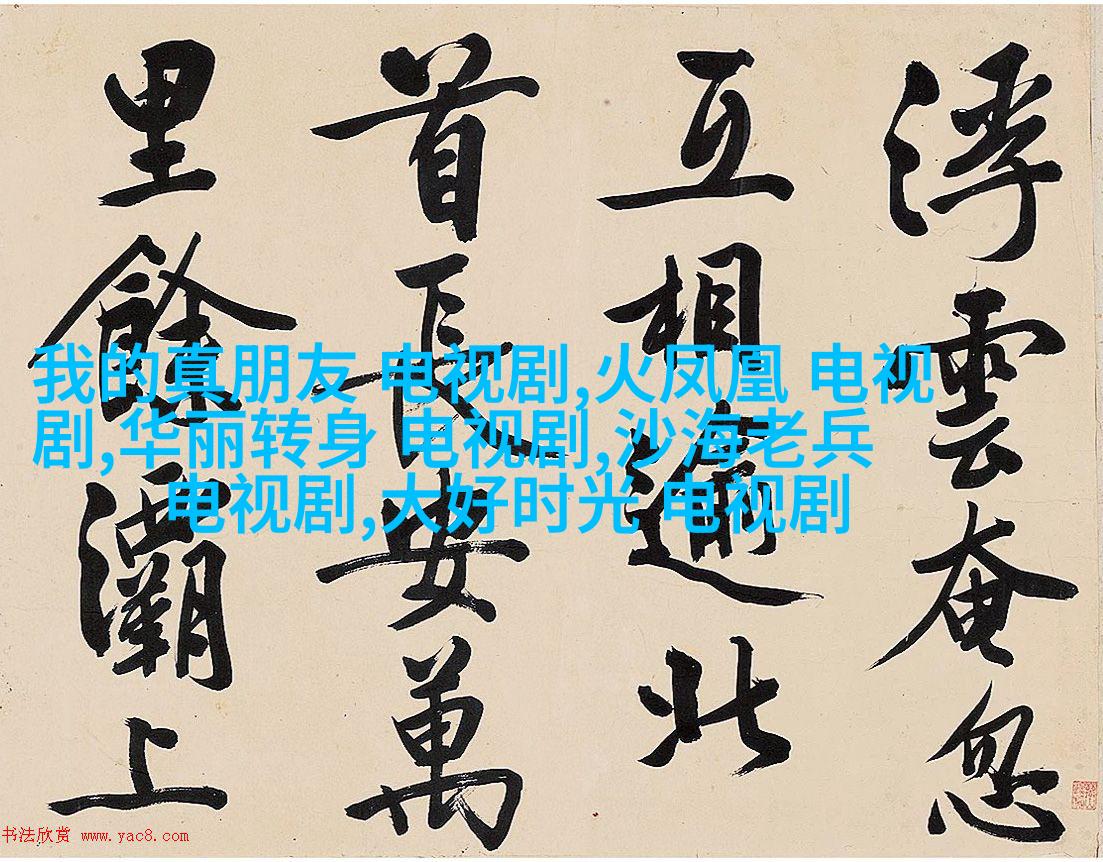 浮雲奄忽
互相逾北
首長安萬
里餘灞上
我的真朋友 电视剧,火凤凰 电视
剧,华丽转身 电视剧,沙海老兵
电视剧,大好时光 电视剧
书法欣赏 www.yac8.com